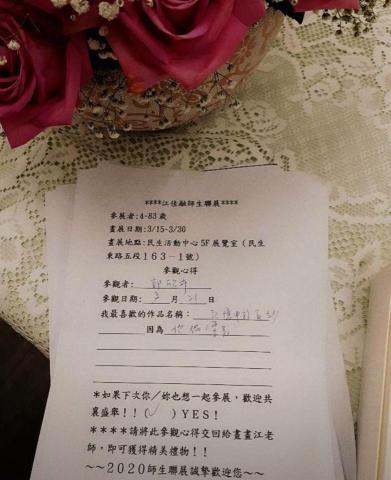 ****江佳融師生聯展****
參展者:4-83歲
畫展日期:3/15-3/30
畫展地點:民生活動中心5F展覽室(民生
東路五段163-1號)
參觀心得
參觀者:
參觀日期: 3 月 21 日
我最喜歡的作品名稱:
因為
*如果下次你/妳也想一起參展,歡迎共
襄盛舉!!(✓)YES!
****請將此參觀心得交回給畫畫江老
師,即可獲得精美禮物!!
~~2020師生聯展誠摯歡迎您~~